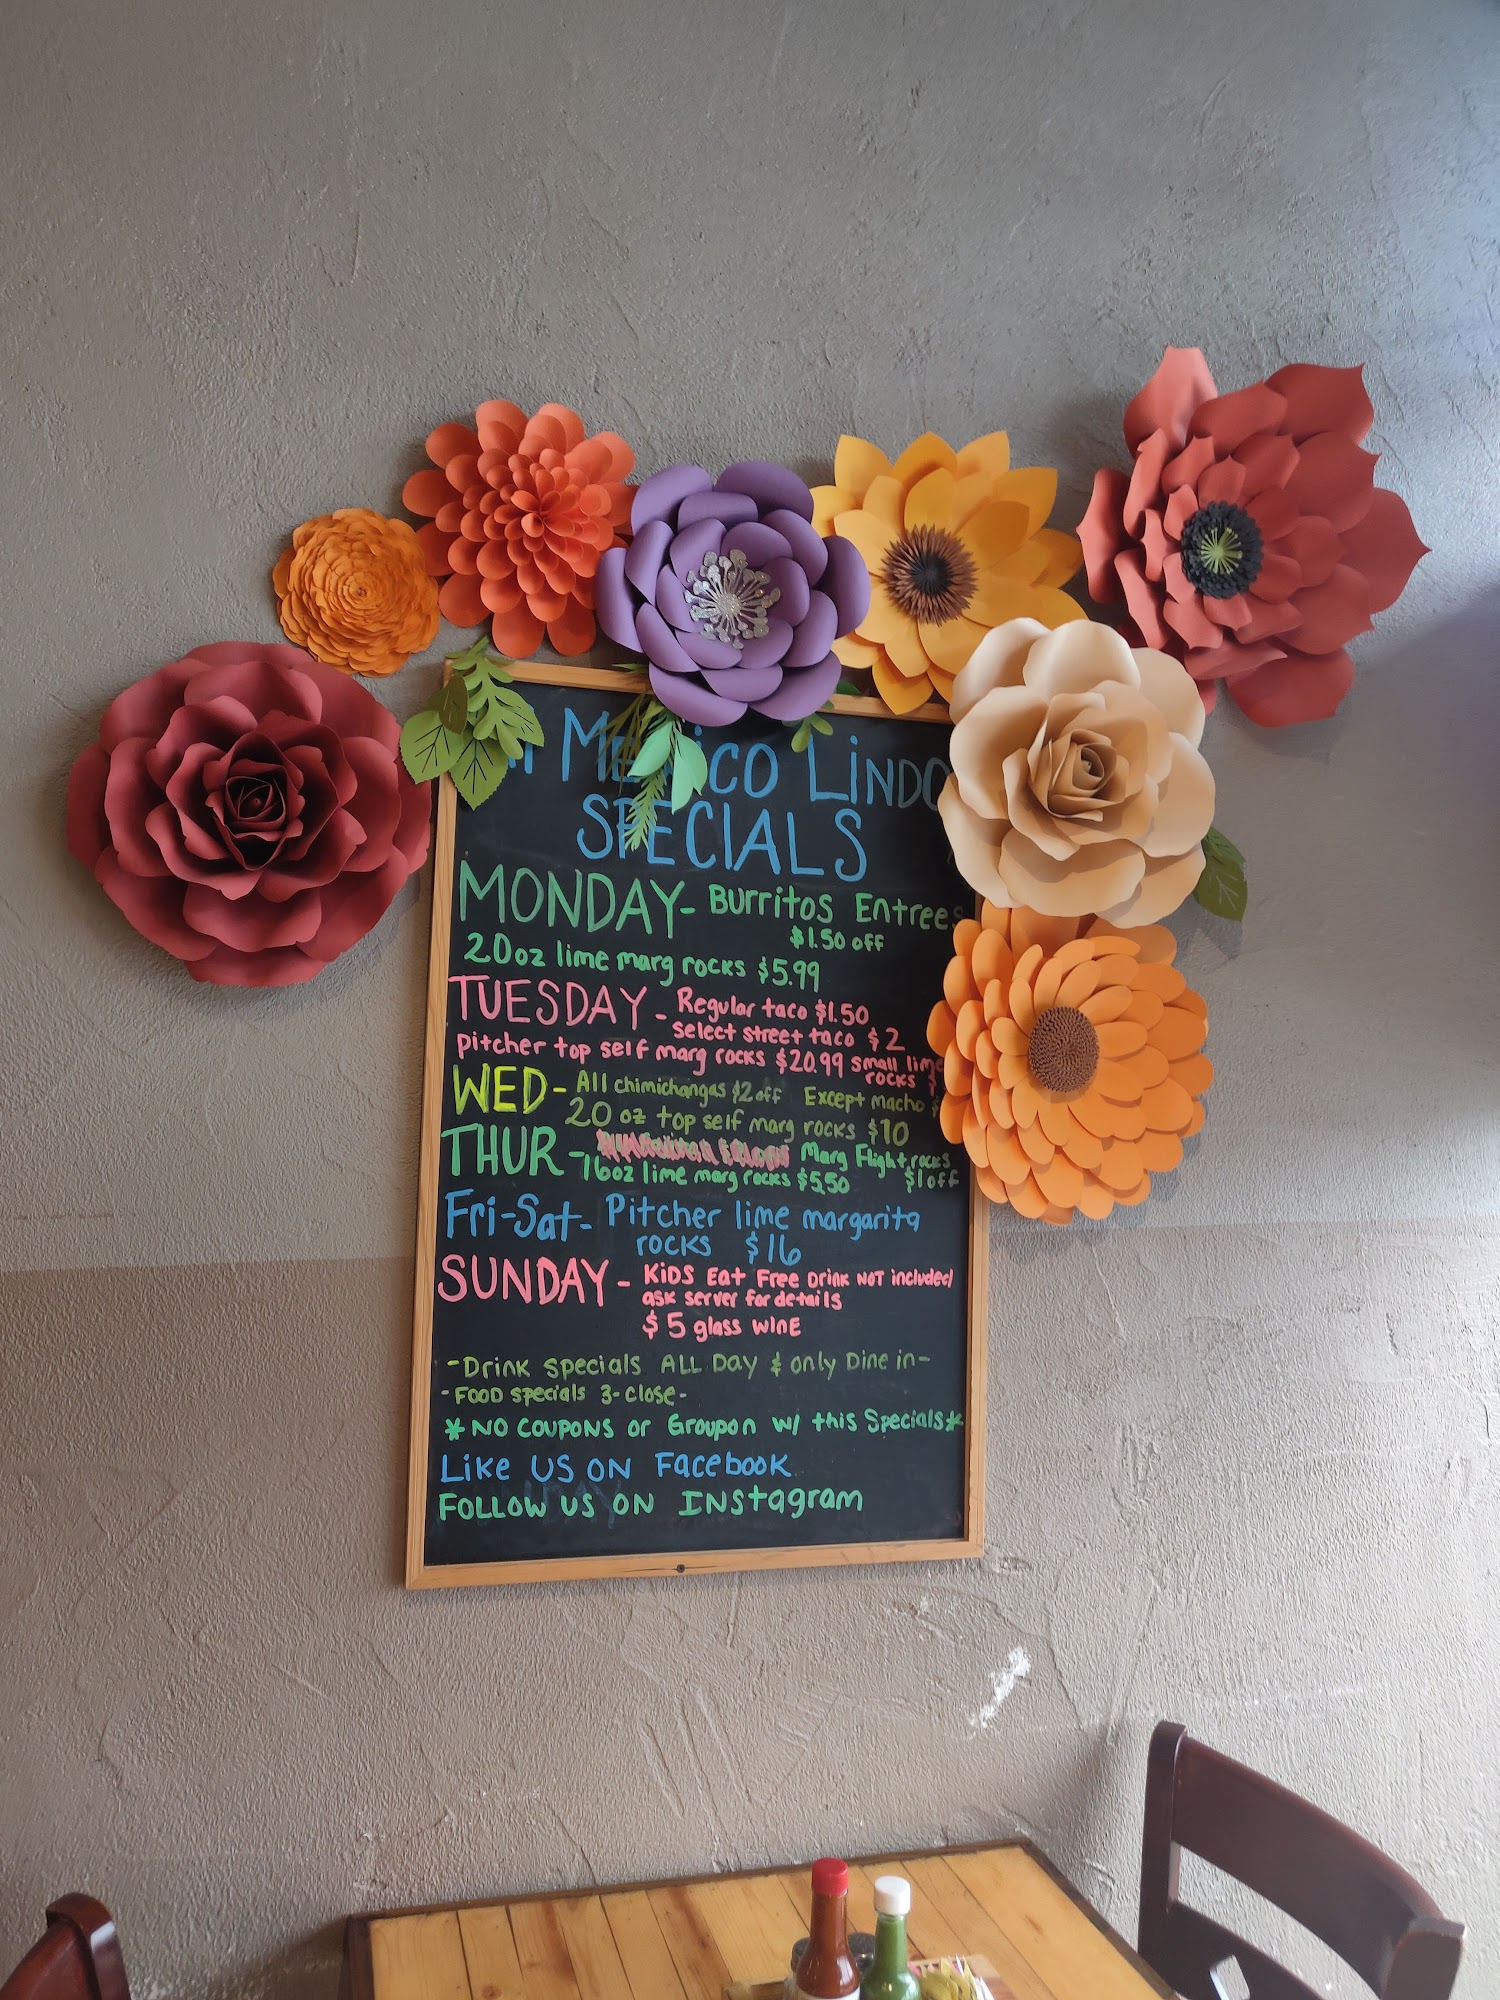 Mexico Lindo
SPECIALS
MONDAY- Burritos Entrees
$1.50 off
20oz lime marg rocks $5.99
TUESDAY - Regular taco $1.50
select street taco $2
pitcher top self marg rocks $20.99 small lime
rocks
WED- All chimichangas $2 off Except macho
20 oz top self marg rocks $10
THUR- Marg Flight rocks
16oz lime marg rocks $5.50 $1 off
Fri-Sat- Pitcher lime margarita
rocks $16
SUNDAY- KiDS Eat Free Drink NOT included
ask server for details
$5 glass WINE
-Drink specials ALL Day & only Dine in-
-FOOD specials 3-Close-
*NO COUPONS or Groupon w/ this Specials*
Like US ON Facebook
FOLLOW US ON INstagram